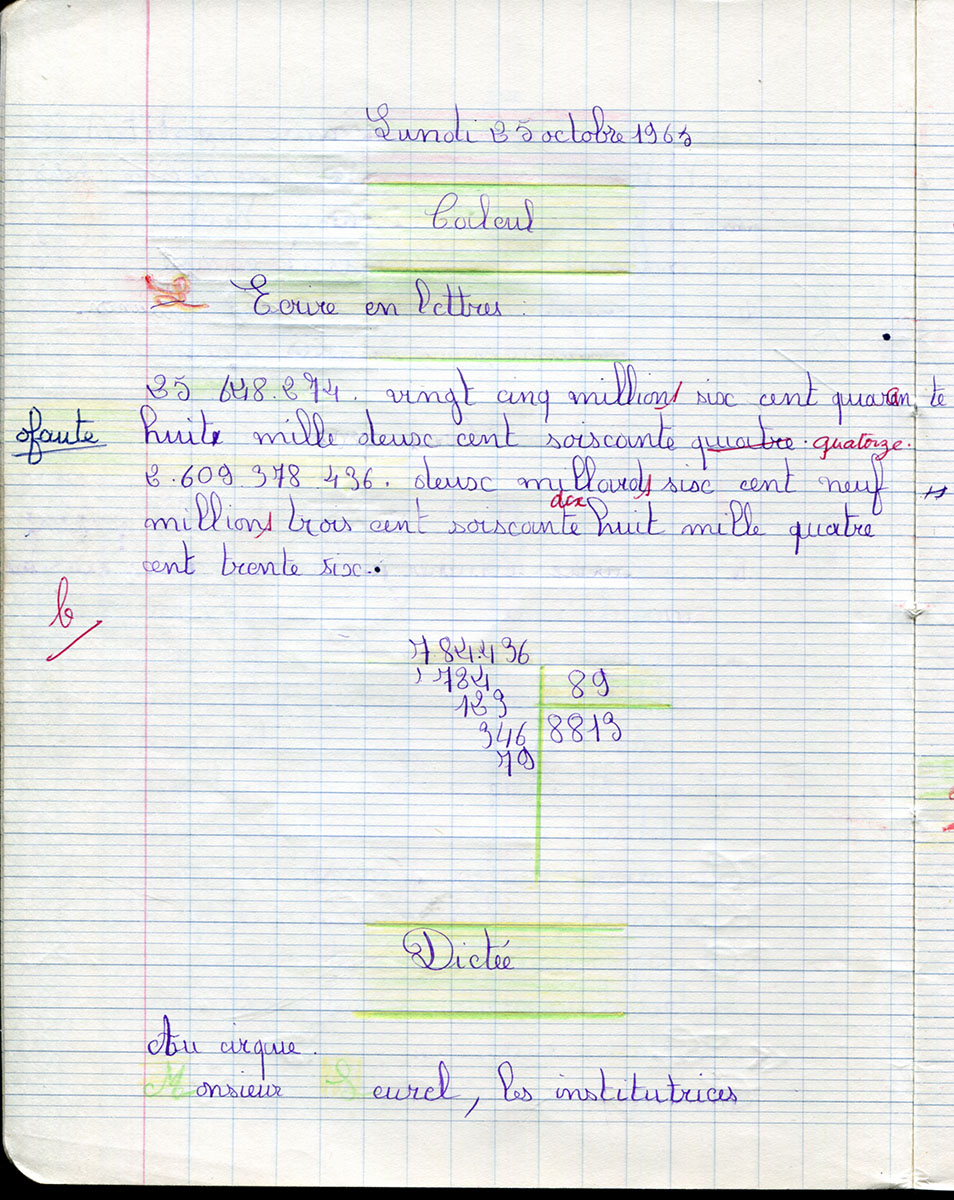 Lundi 25 octobre 1965
Calcul
Ecrire en lettres.
25 648.274. vingt cinq millions six cent quaran te
0 faute huit mille deux cent soixante quatre. quatorze.
2.609.378.436. deux millards six cent neuf
dix
millions trois cent soixante huit mille quatre
cent trente six.
b
784.436
784 89
123
346 8813
79
Dictée
Au cirque.
Monsieur Seurel, les institutrices